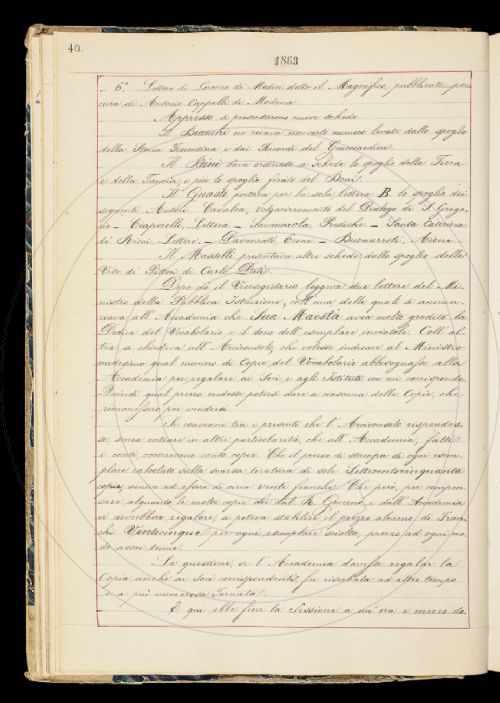 40.
1863
6.° Lettere di Lorenzo de Medici detto il Magnifico, pubblicate per
cura di Antonio Cappelli di Modena
Appresso si presentarono nuove schede
Il Bianchi ne recava un certo numero levate dallo spoglio
della Storia Fiorentina e dai Ricordi del Guicciardini.
Il Bini dava ordinato a schede lo spoglio della Fiera
e della Tancia, e più lo spoglio finito del Berni.
Il Guasti portava per la sola lettera B. lo spoglio dei
seguenti Autori Cavalca, Volgarizzamento del Dialogo di S. Grego-
rio – Lettera – Savonarola Prediche – Santa Caterina
de Ricci Lettere. – Davanzati, Opere – Buonarroti, Opere.
Il Masselli presentava altre schede dallo spoglio delle
Vite di Pittori di Carlo Dati.
Dopo ciò il Vicesegretario leggeva due lettere del Mi-
nistro della Pubblica Istruzione, coll'una delle quali si annun-
ziava all'Accademia che Sua Maestà avea molto gradito la
Dedica del Vocabolario e il dono dell'esemplare inviatole. Coll'al-
tra si chiedeva all'Arciconsolo, che volesse indicare al Ministro
medesimo qual numero di Copie del Vocabolario abbisognasse alla
Accademia per regalare ai Soci e agli Istituti con cui corrisponde.
Quindi qual prezzo credesse potersi dare a ciascuna delle Copie, che
rimanessero per vendersi.
Si convenne tra i presenti che l'Arciconsolo rispondes-
se, senza entrare in altre particolarità, che all'Accademia, fatti
i conti, occorrevano cento copie. Che il prezzo di stampa di ogni esem-
plare calcolato sulla scarsa tiratura di sole Settecentocinquanta
copie, veniva ad essere di circa venti franchi. Che però, per compen-
sare alquanto le molte copie che dal R. Governo e dall'Accademia
si dovrebbero regalare, si poteva stabilire il prezzo almeno di Fran-
chi Venticinque per ogni esemplare sciolto, prezzo ad ogni mo-
do assai tenue.
La questione, se l'Accademia dovesse regalar la
Copia anche ai Soci corrispondenti, fu riserbata ad altro tempo
e a più numerosa Tornata.
E qui ebbe fine la Sessione a un'ora e mezzo do